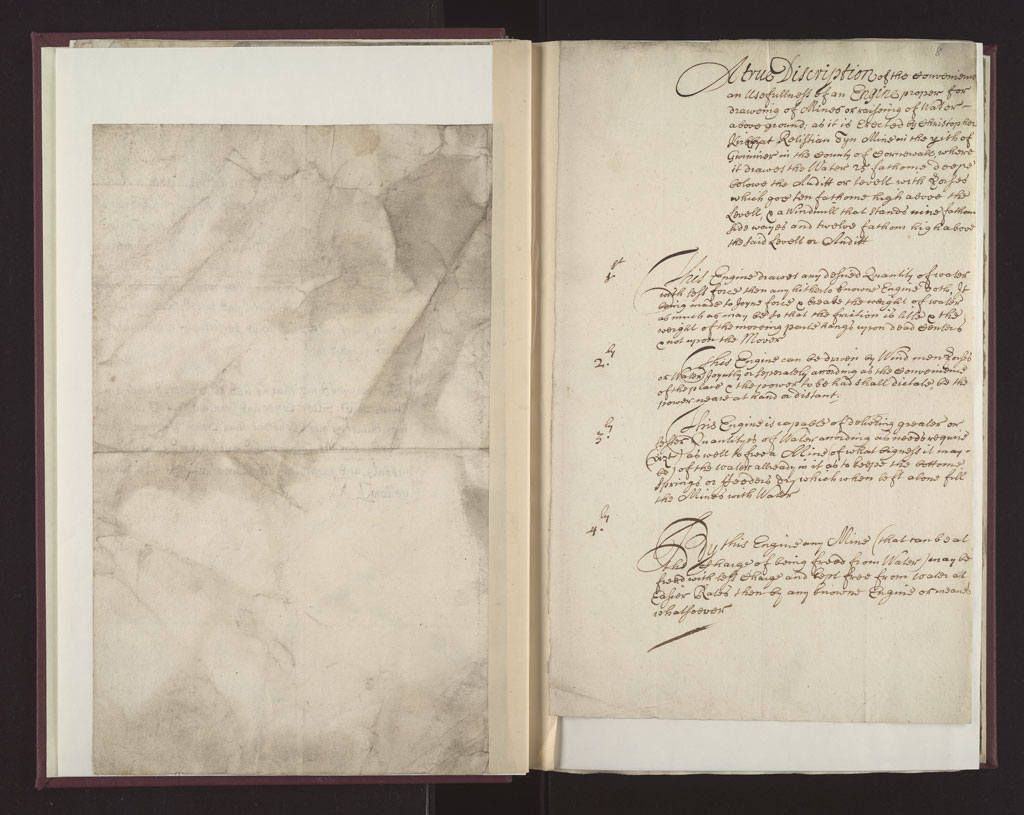 8
A true Discription of the Convenience
an Usefullness of an Engine proper for
draweing of Mines or raiseing of Water
above ground; as it is Erected by Christopher
at Relistian Tyn Mine in the pish of
Gwinier in the County of Cornewall, where
it drawes the Water 25 fathome deepe
belowe the Auditt or levell with Horses
which goe ten fathome high above the
Levell, & a Windmill that stands nine fathom
side wayes and twelve fathom high above
the said Levell or Auditt
1st
This Engine drawes any desired Quantity of water
with less force then any hitherto knowne Engine doth, It
being made to joyne force & create the weight of water
as much as may be so that the friction is litle & the
weight of the moveing parte hangs upon dead Centers
& not upon the Mover
2.ly
This Engine can be driven by Wind men Horses
or Water Joyntly or seperately according as the Convenience
of the place & the power to be had shall dictate, be the
power neare at hand or distant;
3.ly
This Engine is capable of delivering greater or
lesser Quantityes of Water according as needs require
(vizt) as well to free a Mine of what bigness it may
be) of the water allready in it as to keepe the bottome
springs or feeders dry which when left alone fill
the Mines with Water
4.ly
By this Engine any Mine (that can be at
the Charge of being freed from Water) may be
freed with less Charge and kept free from water at
Easier Rates then by any knowne Engine or meanes
whatsoever